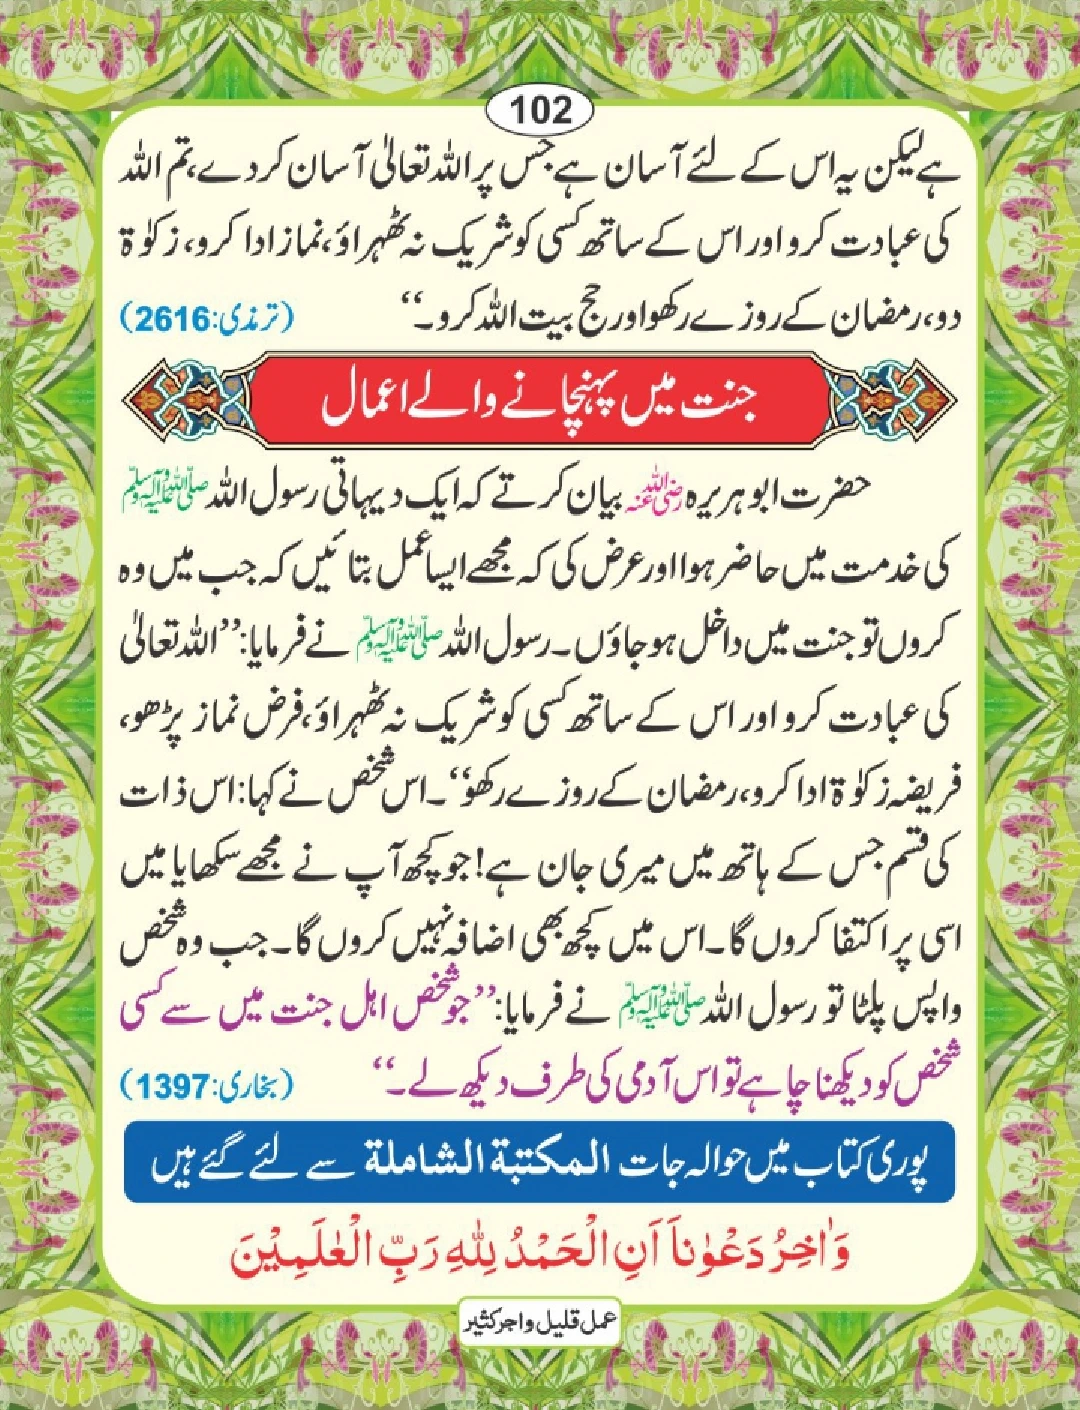 102
ہے لیکن یہ اس کے لئے آسان ہے جس پر اللہ تعالیٰ آسان کر دے، تم اللہ
کی عبادت کرو اور اس کے ساتھ کسی کو شریک نہ ٹھہراؤ، نماز ادا کرو، زکوٰۃ
دو، رمضان کے روزے رکھو اور حج بیت اللہ کرو۔‘‘ (ترمذی:2616)
جنت میں پہنچانے والے اعمال
حضرت ابو ہریرہ رضی اللہ عنہ بیان کرتے کہ ایک دیہاتی رسول اللہ صلی اللہ علیہ وآلہ وسلم
کی خدمت میں حاضر ہوا اور عرض کی کہ مجھے ایسا عمل بتائیں کہ جب میں وہ
کروں تو جنت میں داخل ہو جاؤں۔ رسول اللہ صلی اللہ علیہ وآلہ وسلم نے فرمایا: ’’اللہ تعالیٰ
کی عبادت کرو اور اس کے ساتھ کسی کو شریک نہ ٹھہراؤ، فرض نماز پڑھو،
فریضہ زکوٰۃ ادا کرو، رمضان کے روزے رکھو‘‘۔ اس شخص نے کہا: اس ذات
کی قسم جس کے ہاتھ میں میری جان ہے! جو کچھ آپ نے مجھے سکھایا میں
اسی پر اکتفا کروں گا۔ اس میں کچھ بھی اضافہ نہیں کروں گا۔ جب وہ شخص
واپس پلٹا تو رسول اللہ صلی اللہ علیہ وآلہ وسلم نے فرمایا: ’’جو شخص اہل جنت میں سے کسی
شخص کو دیکھنا چاہے تو اس آدمی کی طرف دیکھ لے۔‘‘ (بخاری:1397)
پوری کتاب میں حوالہ جات المكتبة الشاملة سے لئے گئے ہیں
وَاٰخِرُ دَعْوٰناَ اَنِ الْحَمْدُ لِلّٰهِ رَبِّ الْعٰلَمِيْنَ
عمل قلیل واجر کثیر